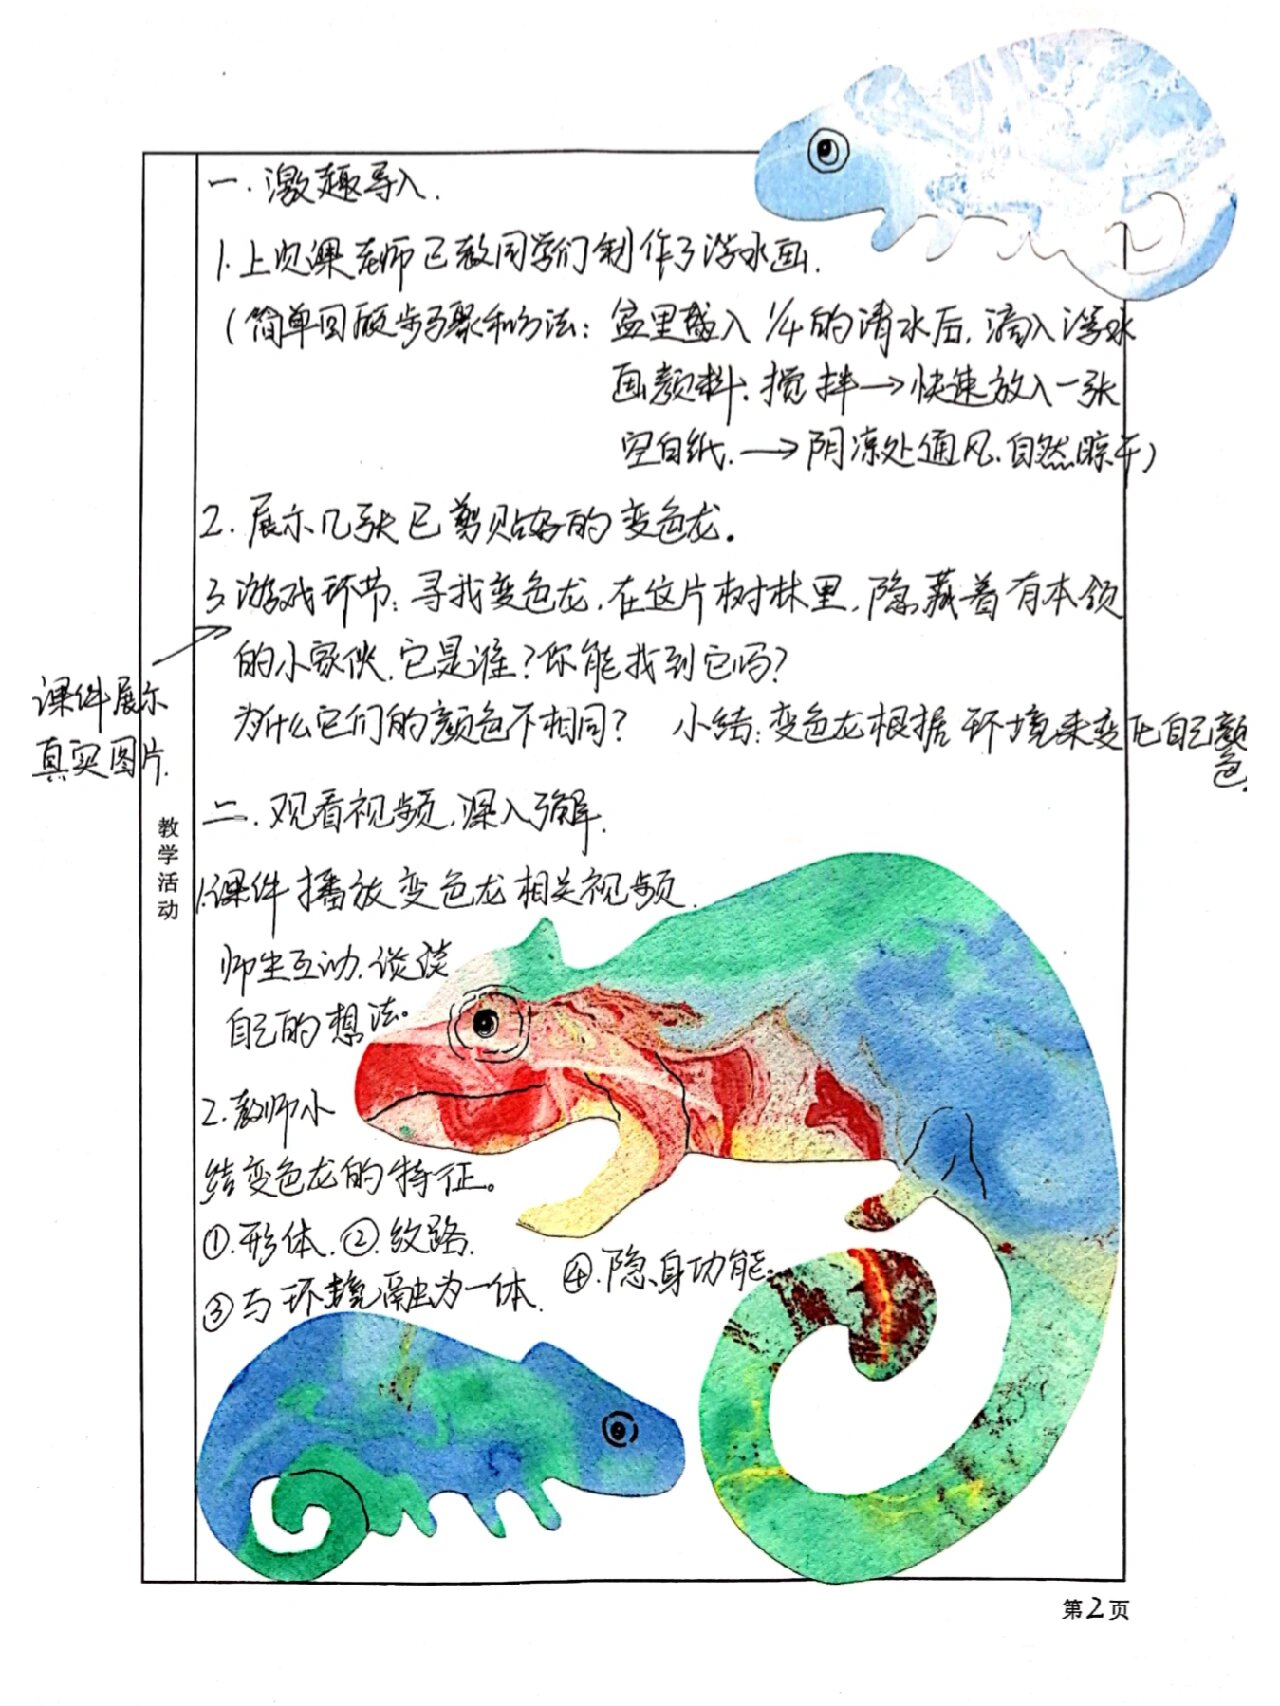 一.激趣导入.
1.上次课老师已教同学们制作了浮水画.
(简单回顾步骤和方法: 盆里盛入1/4的清水后,滴入浮水
画颜料:搅拌→快速放入一张
空白纸.→阴凉处通风.自然晾干)
2.展示几张已剪贴好的变色龙。
3.游戏环节:寻找变色龙.在这片树林里,隐藏着有本领
的小家伙.它是谁?你能找到它吗?
课件展示
真实图片.
为什么它们的颜色不相同? 小结:变色龙根据环境来变化自己颜
色.
二.观看视频.深入讲解.
教学活动
1.课件播放变色龙相关视频.
师生互动.谈谈
自己的想法。
2.教师小
结变色龙的特征。
①.形体.②.纹路.
③与环境融为一体. ④.隐身功能.
第2页